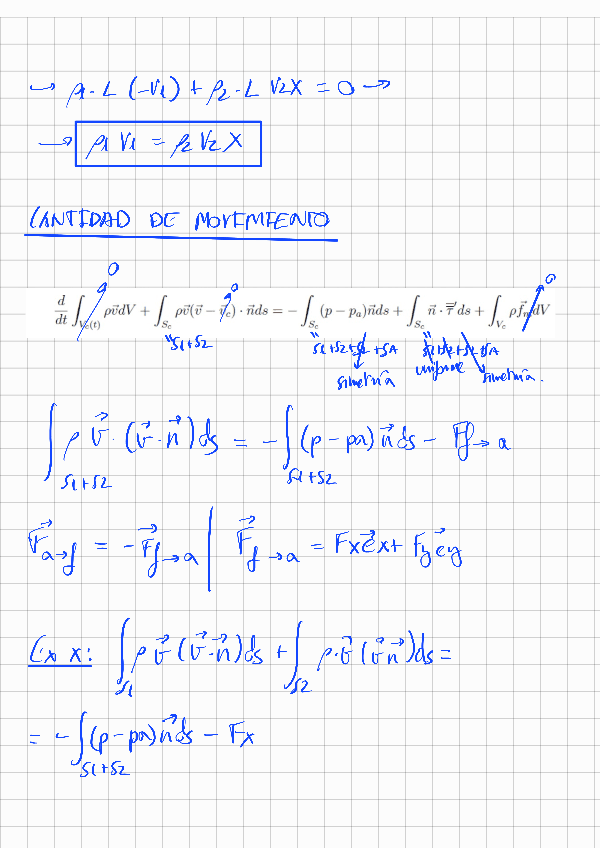 → ρ1·L (-V1) + ρ2·L V2X = 0 →
→ ρ1 V1 = ρ2 V2 X
CANTIDAD DE MOVIMIENTO
0 0 0
d/dt ∫_{Vc(t)} ρv⃗dV + ∫_{Sc} ρv⃗(v⃗ − v⃗c)·n⃗ds = −∫_{Sc} (p − pa)n⃗ds + ∫_{Sc} n⃗·τ̿′ds + ∫_{Vc} ρf⃗m dV
"S1+S2 "S1+S2+SL+SA "S1+S2+SL+SA
simetría uniforme simetría.
∫_{S1+S2} ρ v⃗·(v⃗·n⃗)ds = −∫_{S1+S2} (p−pa) n⃗ds − F⃗f→a
F⃗a→f = −F⃗f→a | F⃗f→a = Fx e⃗x + Fy e⃗y
En x: ∫_{S1} ρ v⃗ (v⃗·n⃗)ds + ∫_{S2} ρ·v⃗ (v⃗ n⃗)ds =
= −∫_{S1+S2} (p−pa)n⃗ds − Fx